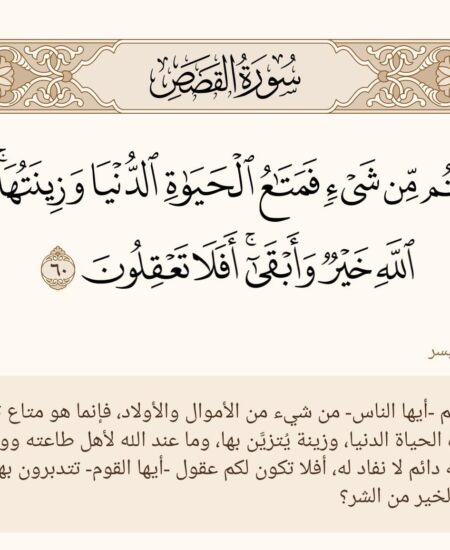 سُورَةُ القَصَصِ
تُم مِّن شَيْءٍ فَمَتَٰعُ ٱلْحَيَوٰةِ ٱلدُّنْيَا وَزِينَتُهَاۚ
ٱللَّهِ خَيْرٌ وَأَبْقَىٰٓۚ أَفَلَا تَعْقِلُونَ ٦٠
يسر
م -أيها الناس- من شيء من الأموال والأولاد، فإنما هو متاع
الحياة الدنيا، وزينة يُتزيَّن بها، وما عند الله لأهل طاعته وو
ه دائم لا نفاد له، أفلا تكون لكم عقول -أيها القوم- تتدبرون به
لخير من الشر؟